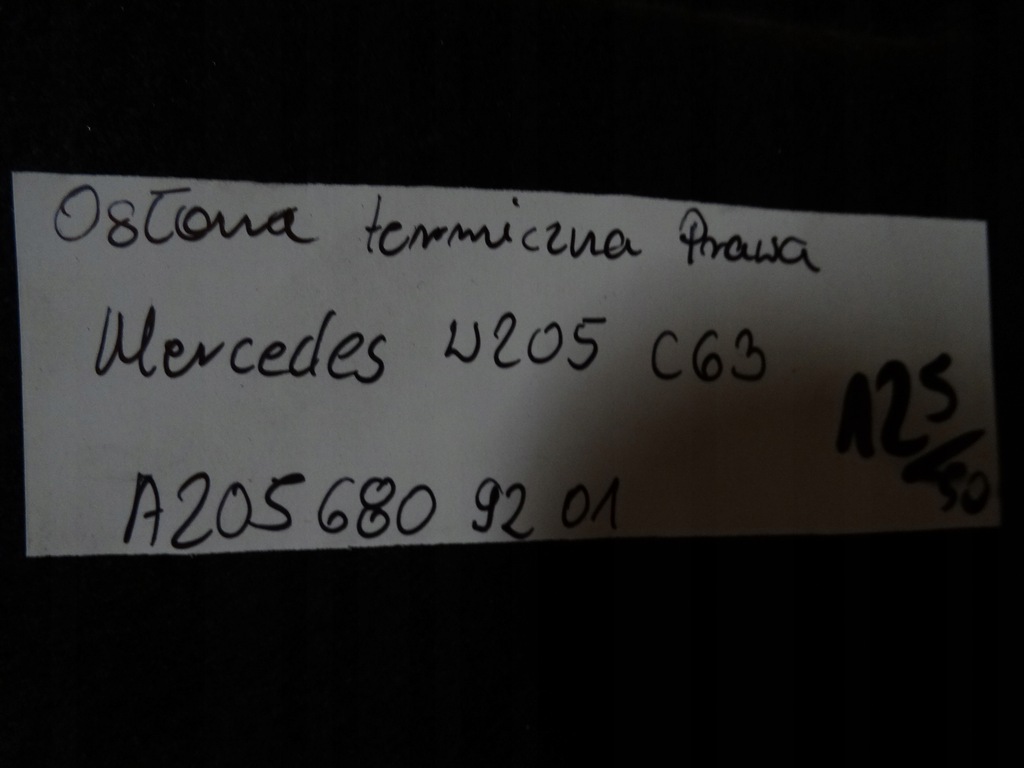 Osłona termiczna Prawa
Mercedes W205 C63
125
50
A205 680 92 01